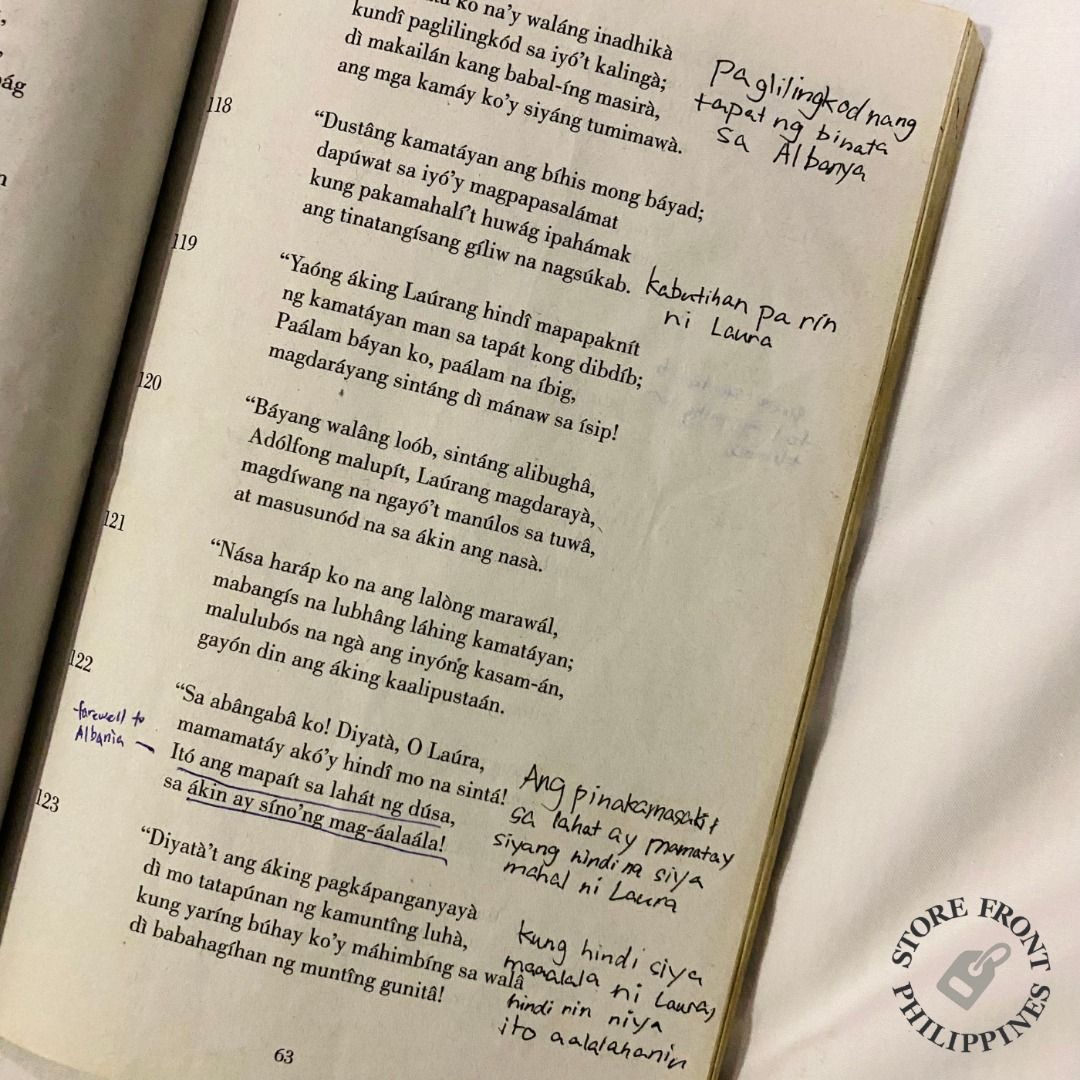 ko na'y waláng inadhikà
kundî paglilingkód sa iyó't kalingà;
dì makailán kang babal-íng masirà,
ang mga kamáy ko'y siyáng tumimawà.
Paglilingkod nang
tapat ng binata
sa Albanya
118
"Dustâng kamatáyan ang bíhis mong báyad;
dapúwat sa iyó'y magpapasalámat
kung pakamahalí't huwág ipahámak
ang tinatangísang gíliw na nagsúkab.
kabutihan pa rin
ni Laura
119
"Yaóng áking Laúrang hindî mapapaknít
ng kamatáyan man sa tapát kong dibdíb;
Paálam báyan ko, paálam na íbig,
magdaráyang sintáng dì mánaw sa ísip!
120
"Báyang walâng loób, sintáng alibughâ,
Adólfong malupít, Laúrang magdarayà,
magdíwang na ngayó't manúlos sa tuwâ,
at masusunód na sa ákin ang nasà.
121
"Nása haráp ko na ang lalòng marawál,
mabangís na lubhâng láhing kamatáyan;
malulubós na ngà ang inyóng kasam-án,
gayón din ang áking kaalipustaán.
122
"Sa abângabâ ko! Diyatà, O Laúra,
mamamatáy akó'y hindî mo na sintá!
Itó ang mapaít sa lahát ng dúsa,
sa ákin ay síno'ng mag-áalaála!
farewell to
Albania
Ang pinakamasakit
sa lahat ay mamatay
siyang hindi na siya
mahal ni Laura
123
"Diyatà't ang áking pagkápanganyayà
dì mo tatapúnan ng kamuntîng luhà,
kung yaríng búhay ko'y máhimbíng sa walâ
dì babahagíhan ng muntîng gunitâ!
kung hindi siya
maaalala ni Laura,
hindi rin niya
ito aalalahanin
63
ág
STORE FRONT
PHILIPPINES